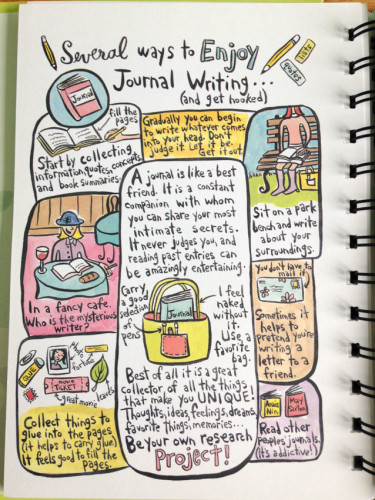 Several ways to Enjoy
Journal Writing...
(and get hooked)
lists
quotes
Journal
fill the
pages
Start by collecting
information, quotes, concepts,
and book summaries.
Gradually you can begin
to write whatever comes
into your head. Don't
judge it. Let it be.
Get it out.
Sit on a park
bench and write
about your
surroundings.
A journal is like a best
friend. It is a constant
companion with whom
you can share your most
intimate secrets.
It never judges you, and
reading past entries can
be amazingly entertaining.
In a fancy cafe.
Who is the mysterious
writer?
Carry
a good
selection
of
pens
Journal
I feel
naked
without
it.
Use a
favorite
bag.
you don't have to
mail it
Sometimes it
helps to
pretend you're
writing a
letter to a
friend.
GLUE
MOVIE
TICKET
great movie
leaves
Collect things to
glue into the pages.
(it helps to carry glue)
It feels good to fill the
pages.
Best of all it is a great
collector of all the things
that make you UNIQUE!
Thoughts, ideas, feelings, dreams,
favorite things, memories...
Be your own research
Project!
Anaïs
Nin
May
Sarton
Read other
peoples' journals.
(It's addictive!)